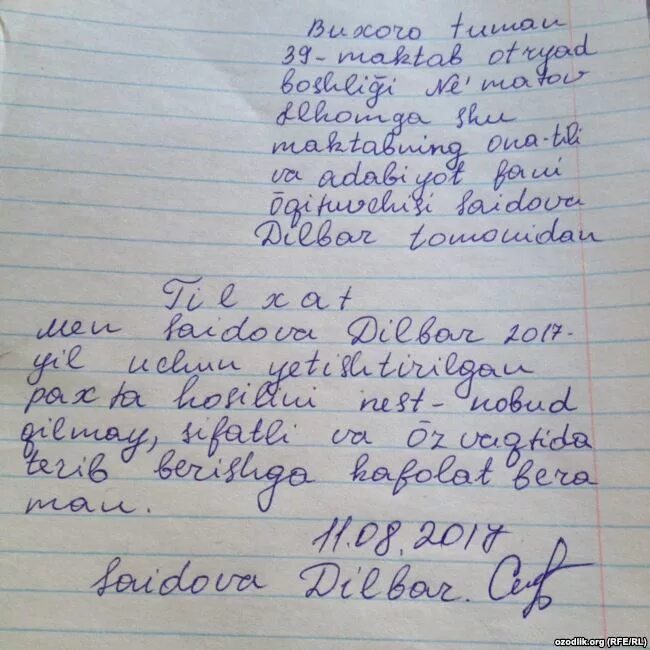 Buxoro tuman
39-maktab otryad
boshliği Ne'matov
Ilhomga shu
maktabning ona-tili
va adabiyot fani
õqituvchisi Saidova
Dilbar tomonidan
Tilxat
Men Saidova Dilbar 2017-
yil uchun yetishtirilgan
paxta hosilini nest-nobud
qilmay, sifatli va õz vaqtida
terib berishga kafolat bera
man.
11.08.2017
Saidova Dilbar.
ozodlik.org (RFE/RL)